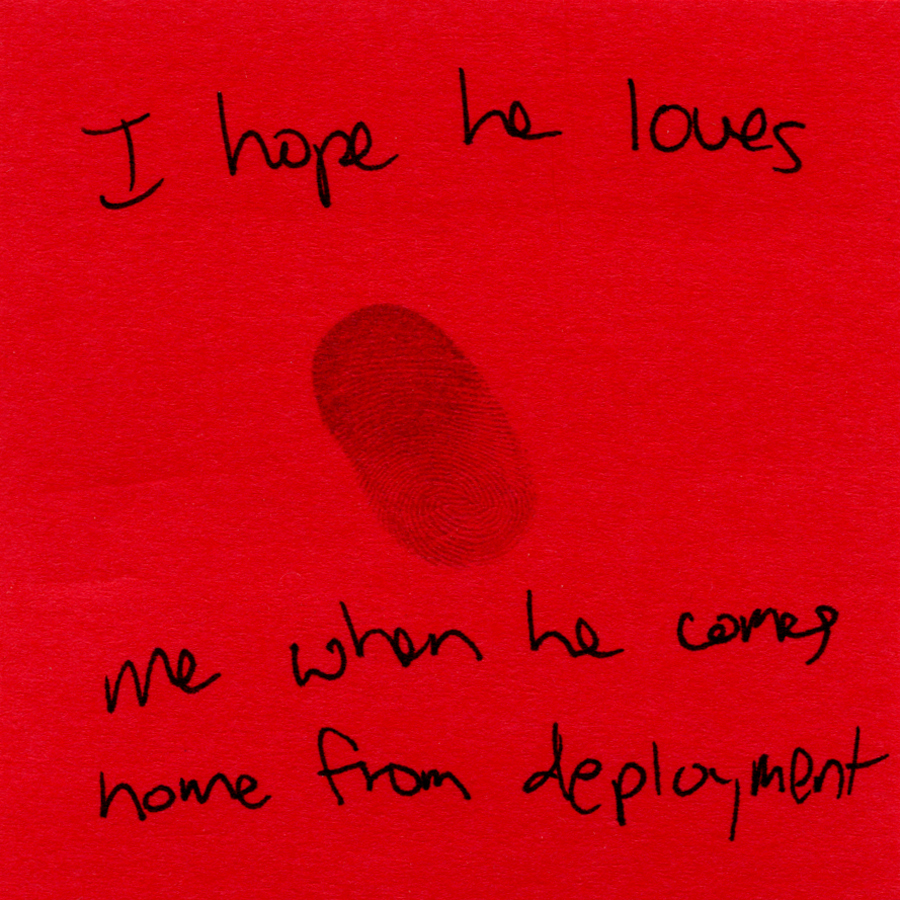 I hope he loves
me when he comes
home from deployment